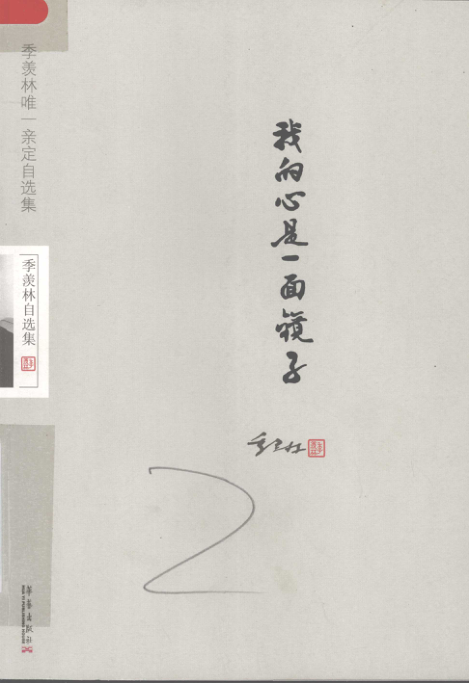 季羡林唯一亲定自选集
季羡林自选集
我的心是一面镜子
季羡林
华艺出版社